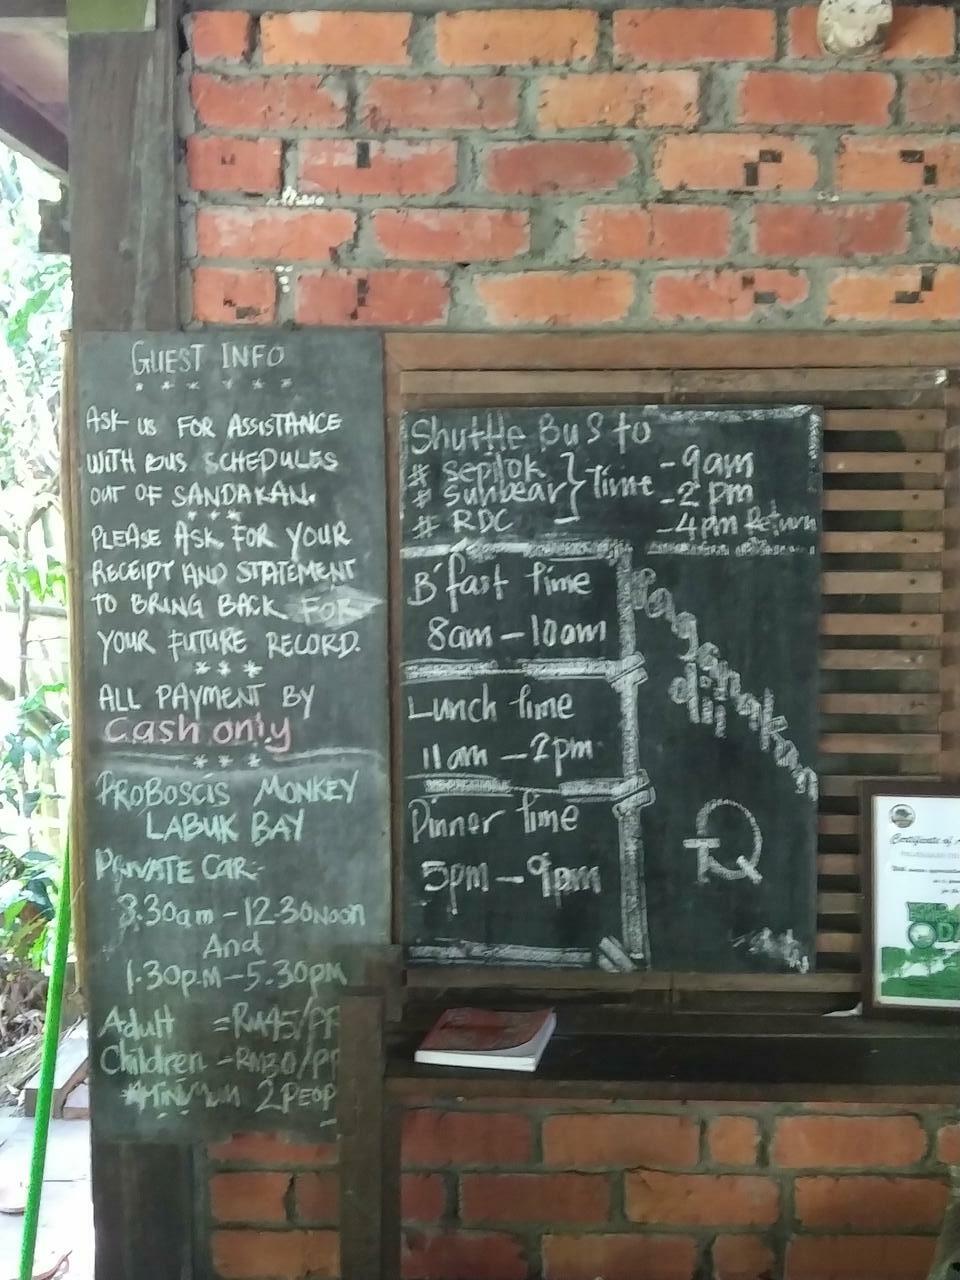 GUEST INFO
* * * * * *
ASK US FOR ASSISTANCE
WITH BUS SCHEDULES
OUT OF SANDAKAN.
* * *
PLEASE ASK FOR YOUR
RECEIPT AND STATEMENT
TO BRING BACK FOR
YOUR FUTURE RECORD.
* * *
ALL PAYMENT BY
Cash only
* * *
PROBOSCIS MONKEY
LABUK BAY
PRIVATE CAR:
8.30am - 12.30NOON
And
1.30p.m - 5.30pm
Adult = RM45/PP
Children - RM30/PP
*MINIMUM 2 PEOP
Shuttle Bus to
# sepilok } Time - 9am
# sunbear - 2 pm
# RDC - 4pm Return
B'fast time
8am - 10am
Lunch time
11am - 2pm
Dinner time
5pm - 9pm
TQ
Certificate of